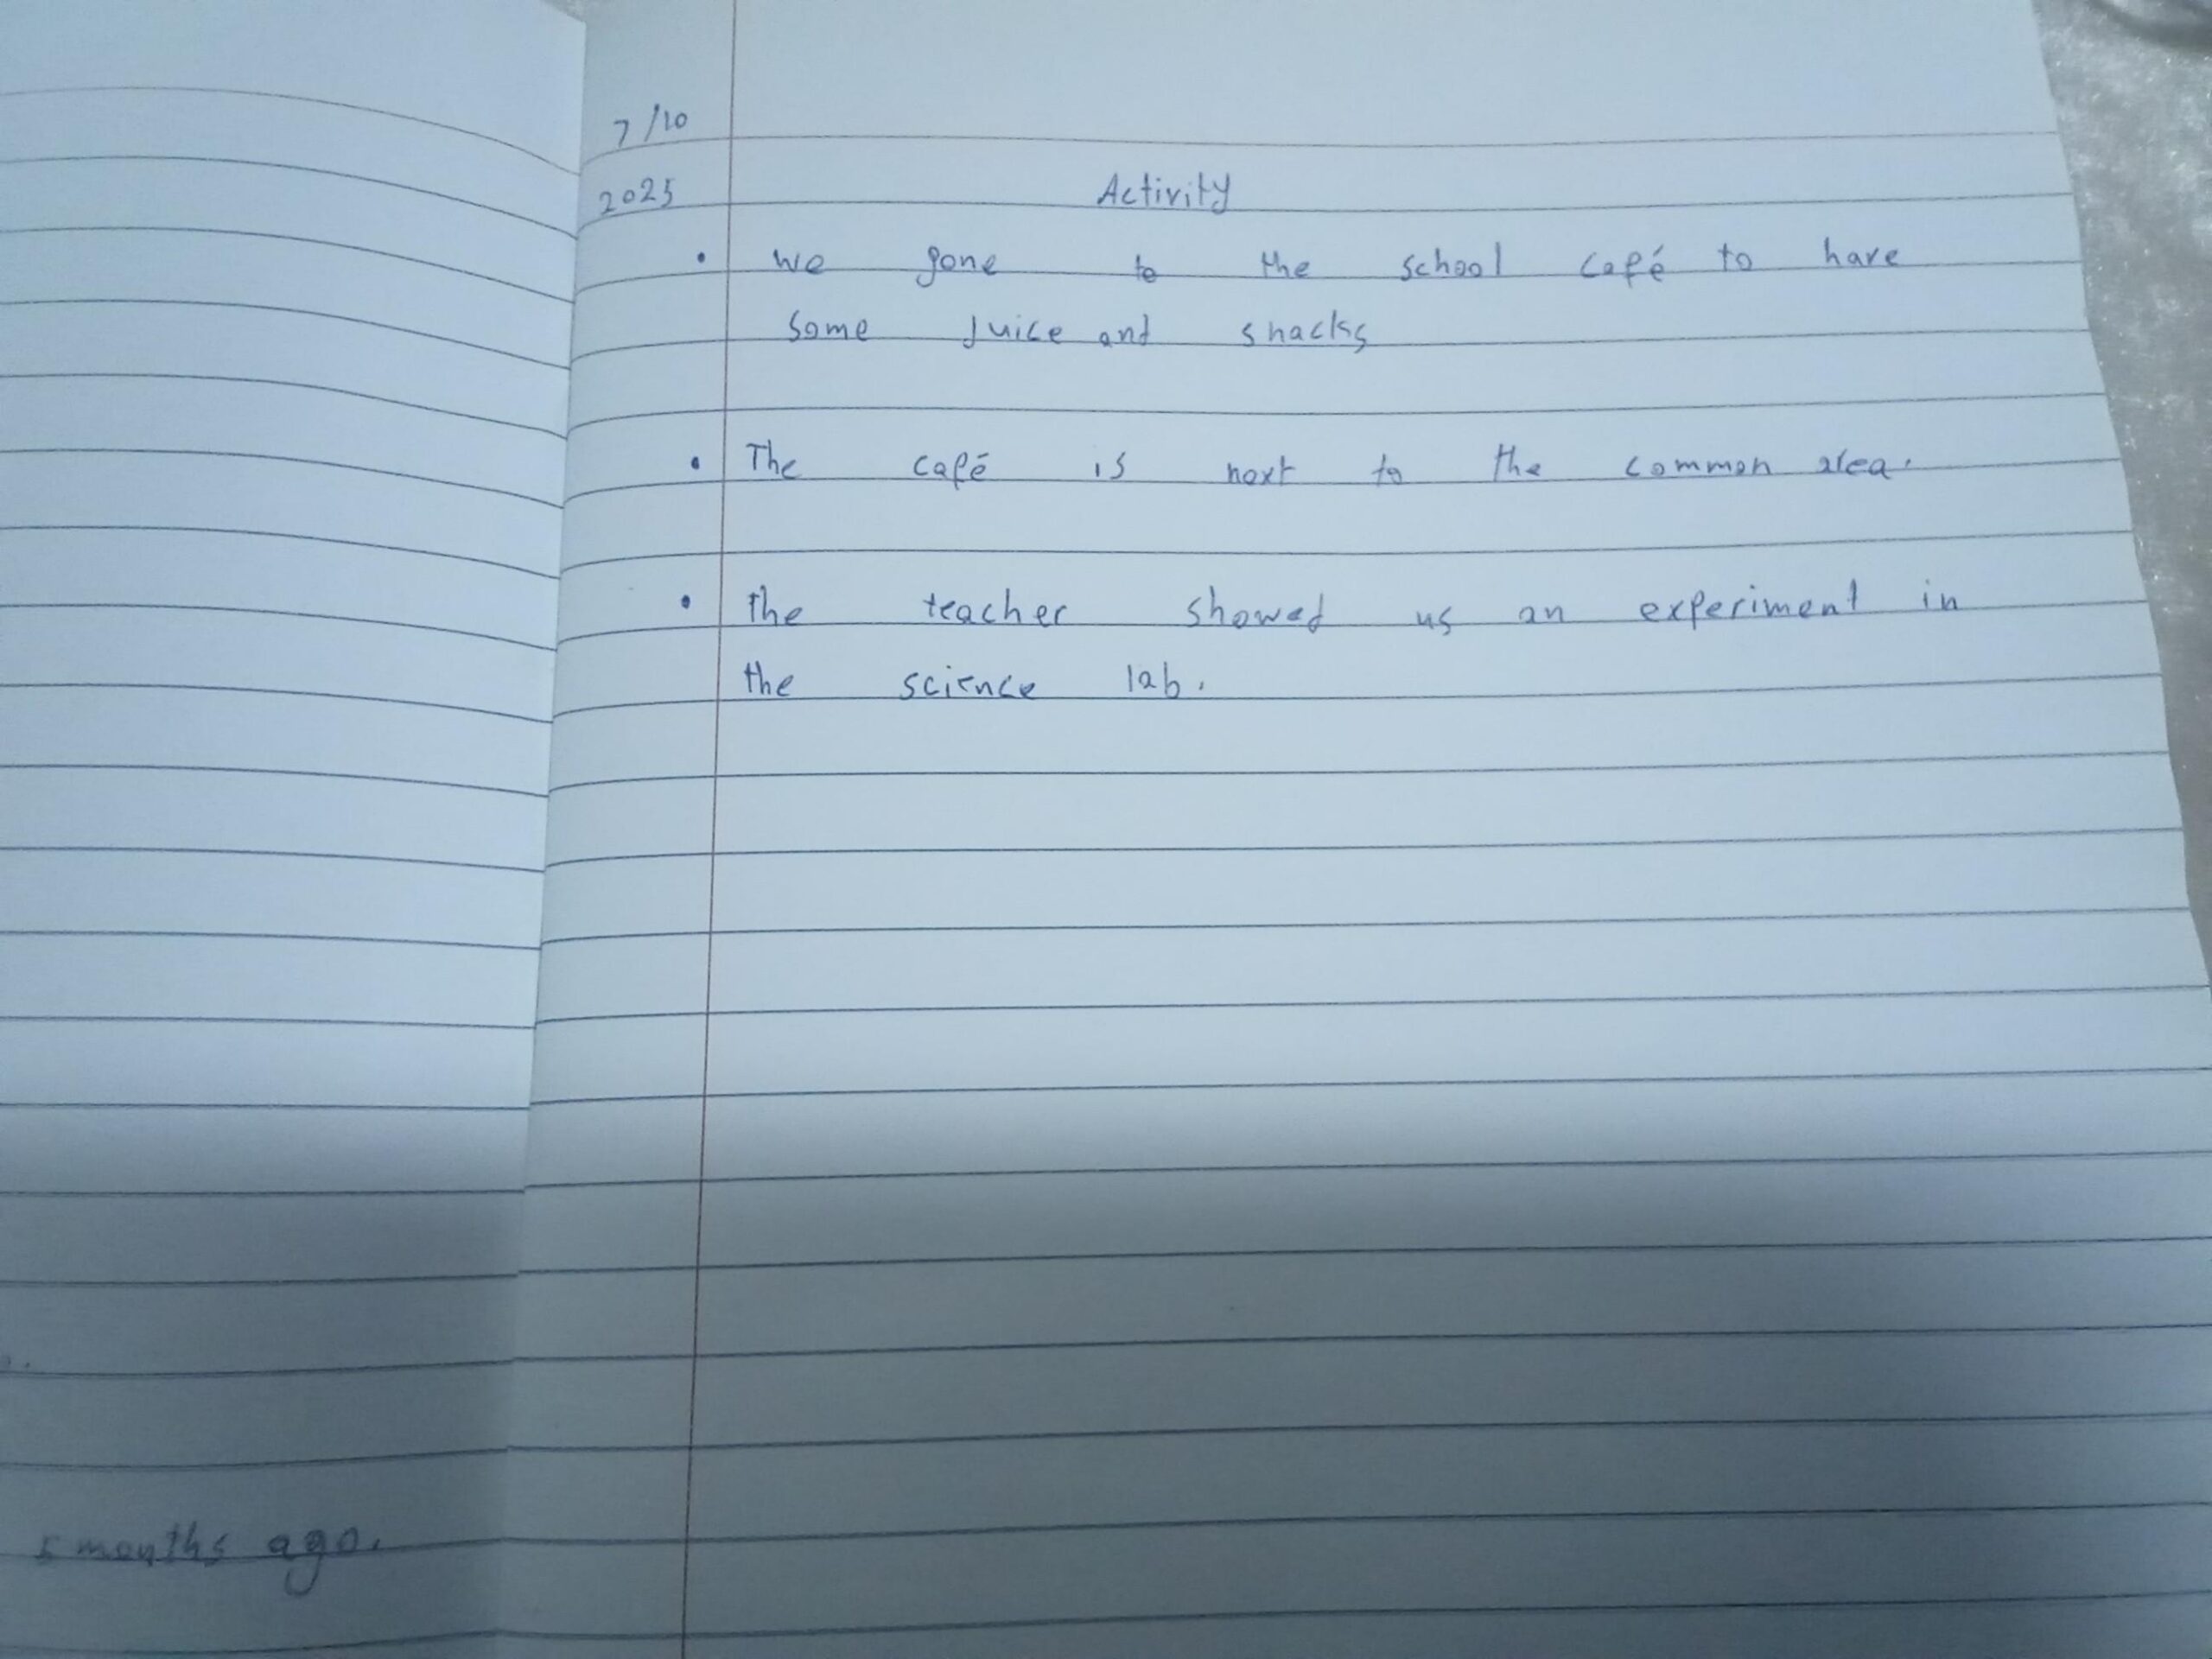 7/10
2025
Activity
• We gone to the school café to have
some Juice and snacks
• The café is next to the common area.
• The teacher showed us an experiment in
the science lab.
months ago.